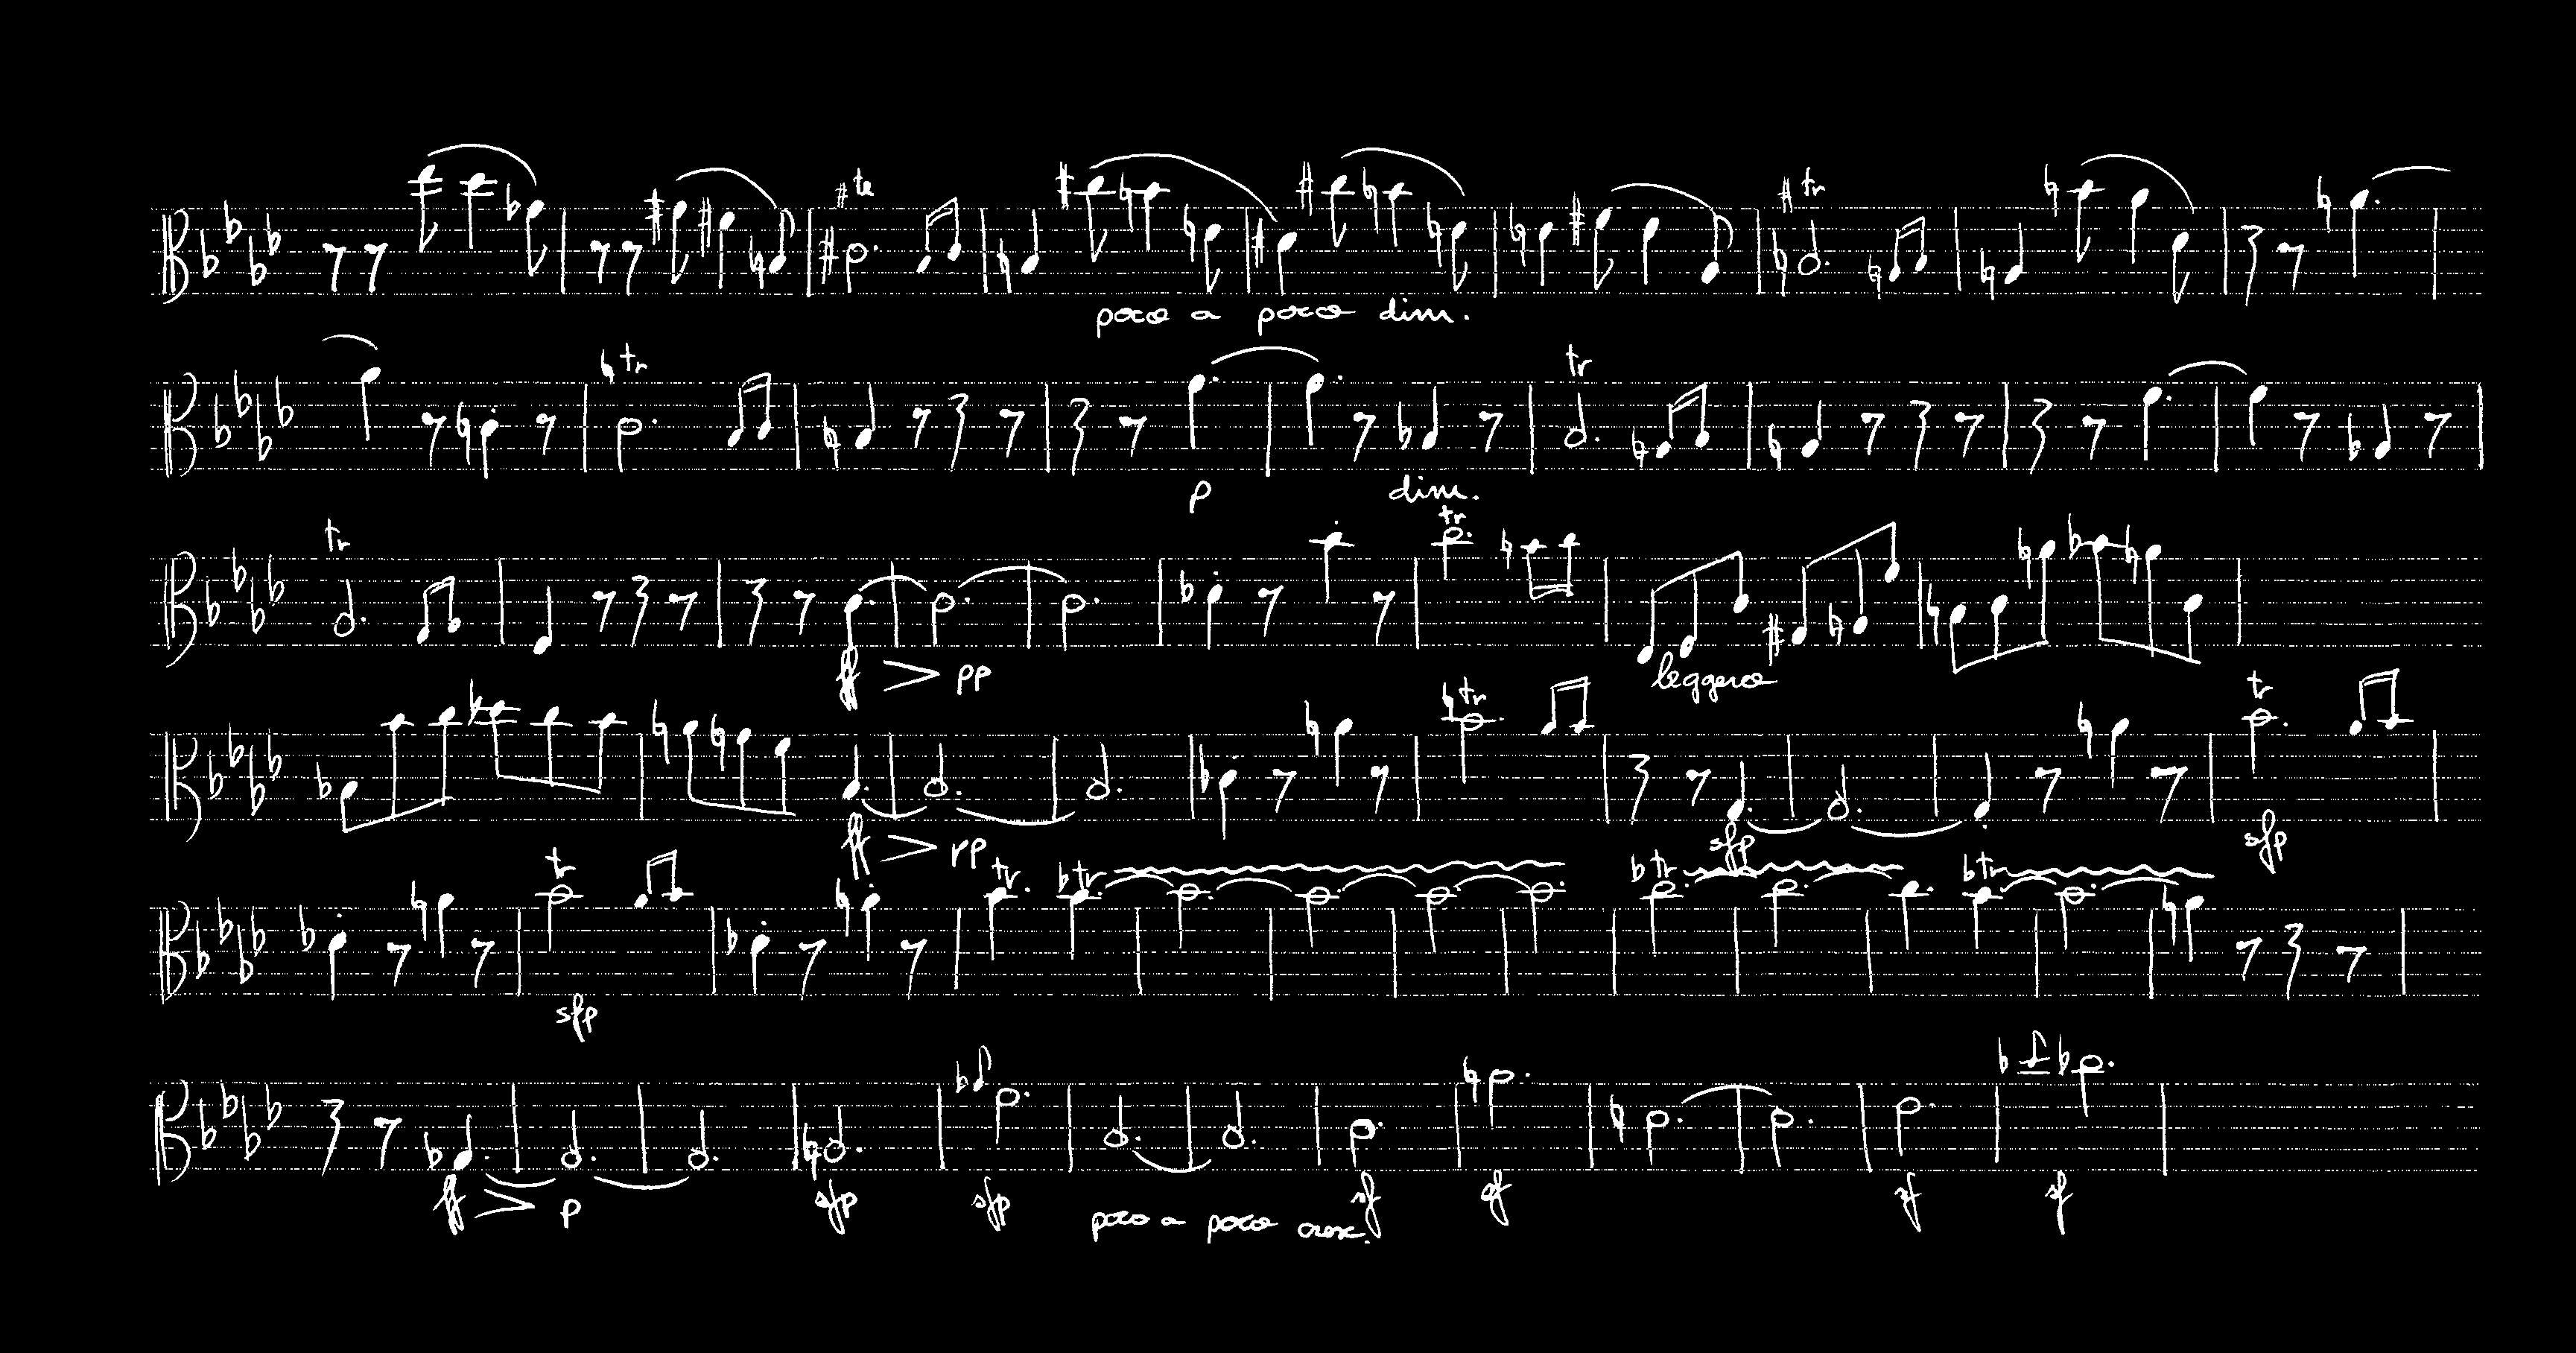 tr tr
poco a poco dim.
tr tr
p dim.
tr tr
ff pp leggero
tr tr
ff pp sfp sfp
tr tr tr tr tr
sfp
ff p sfp sfp poco a poco cresc. sf sf sf sf